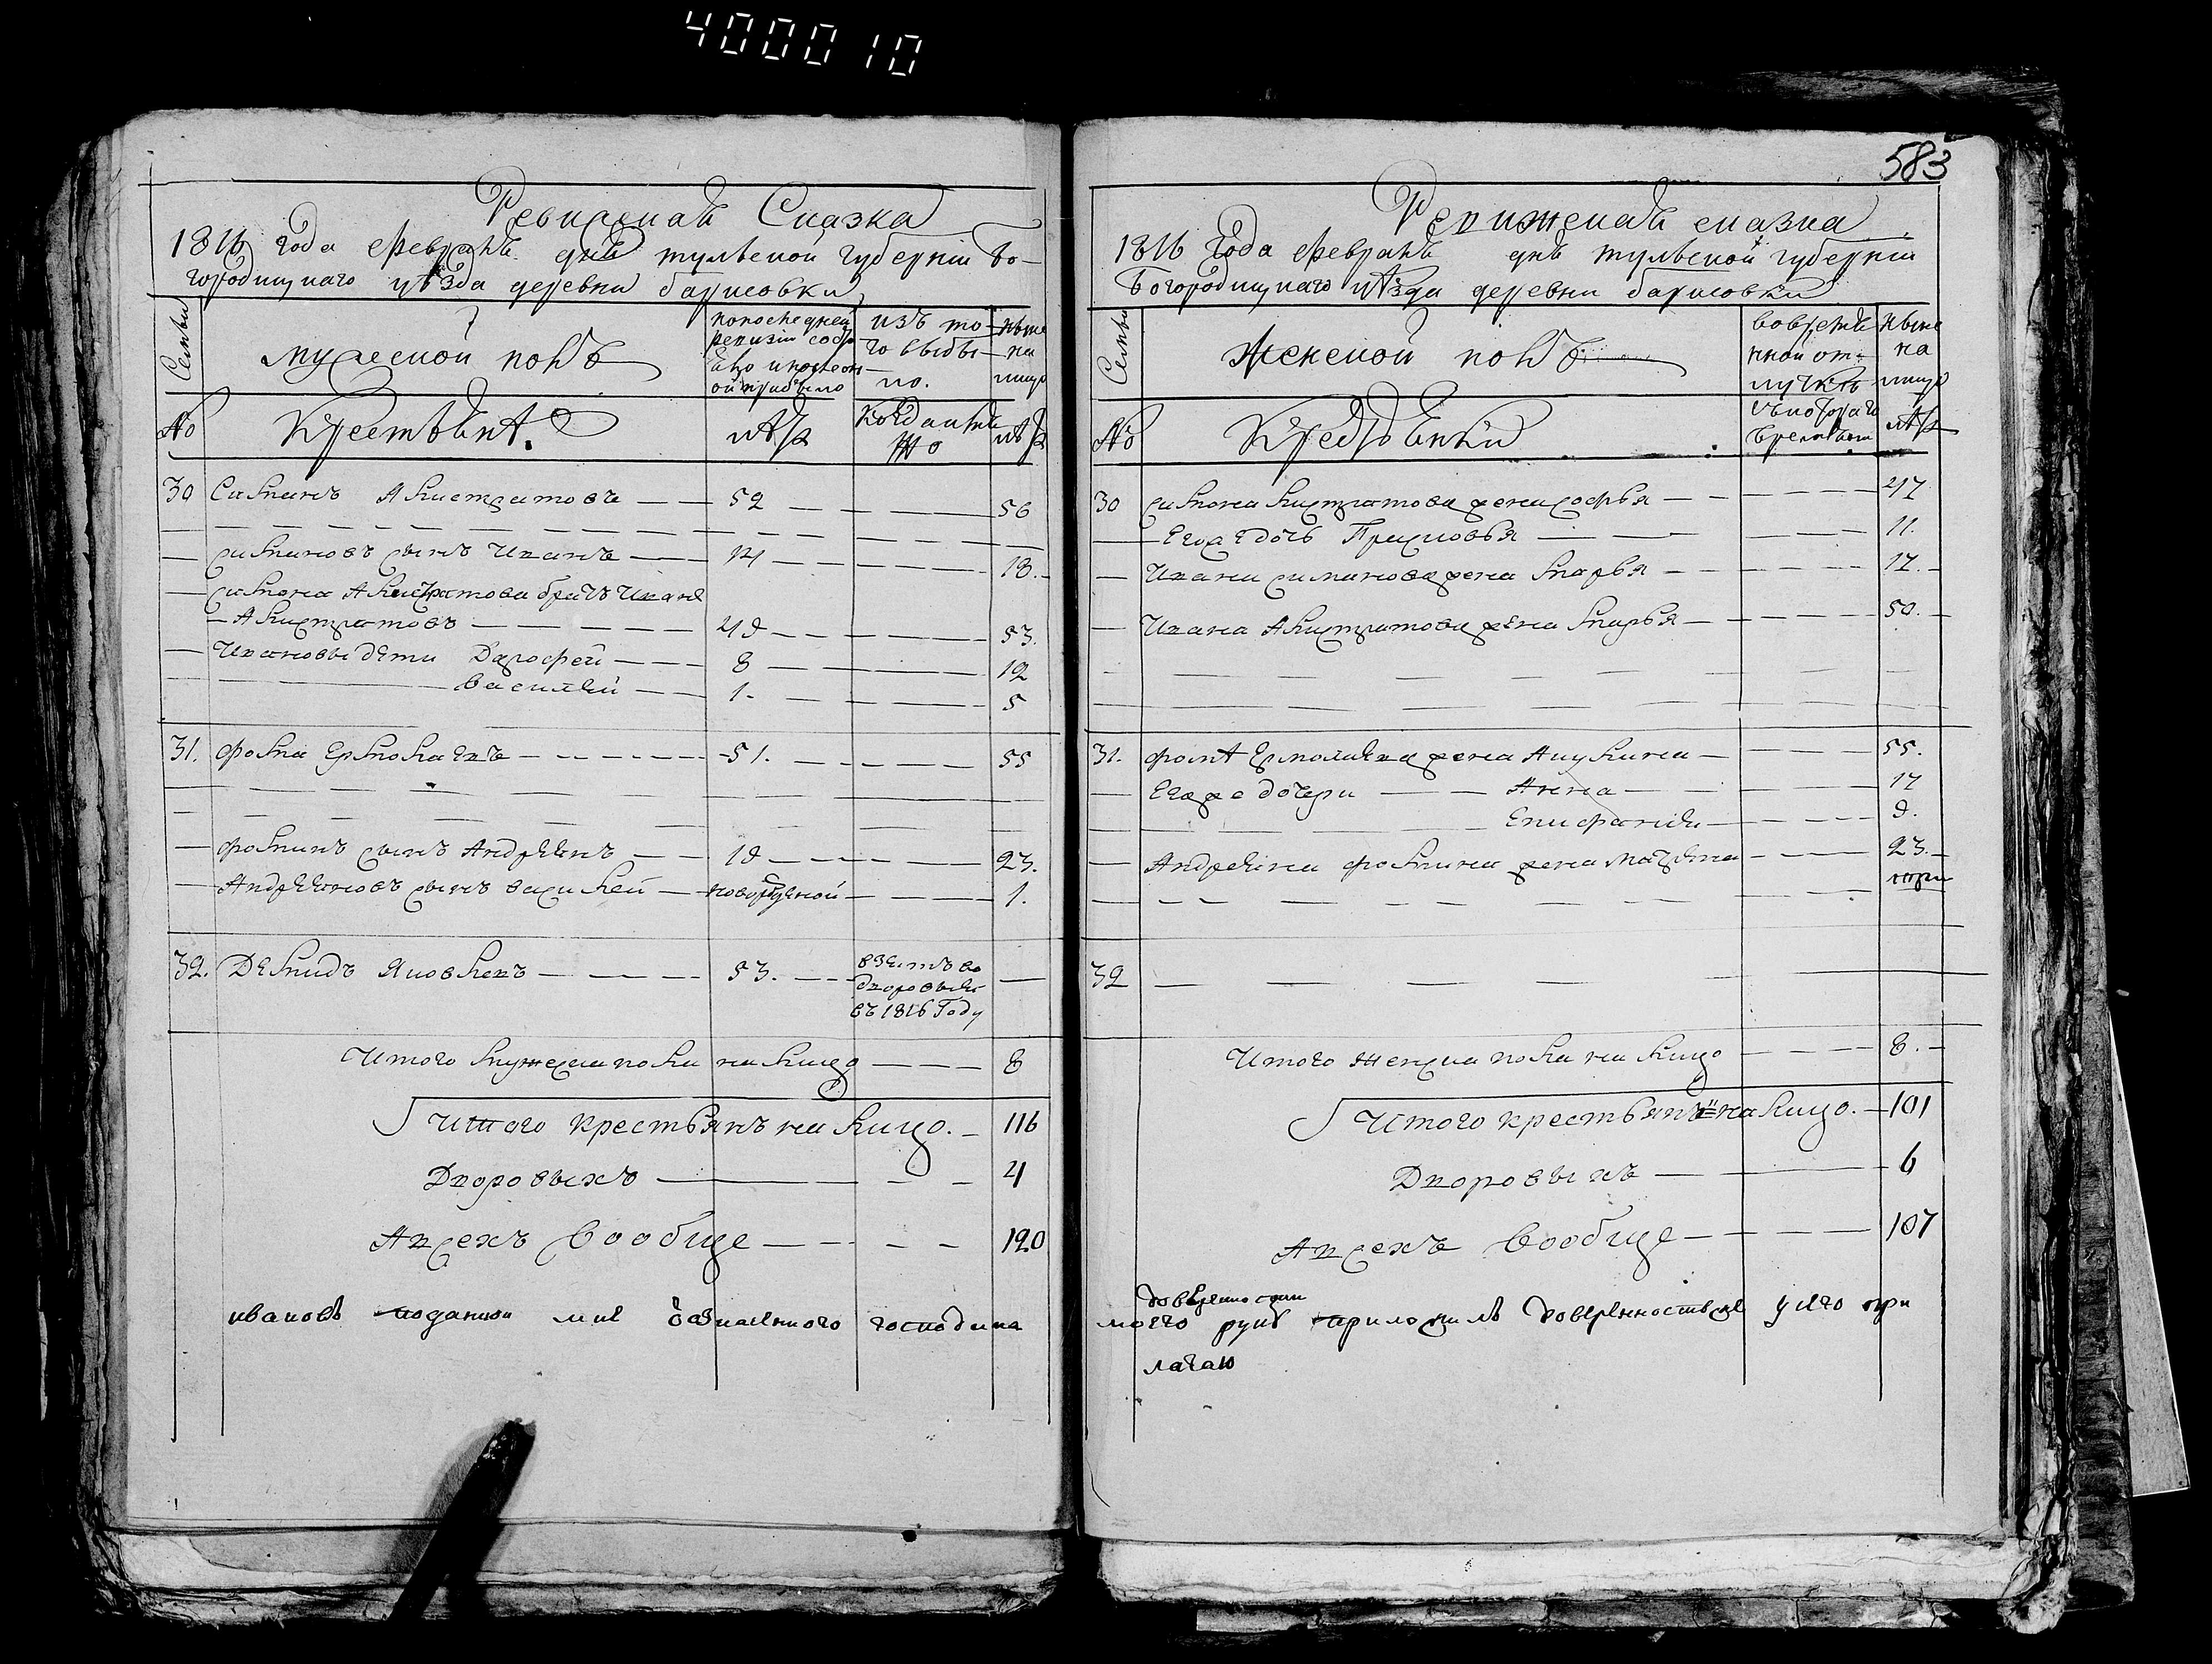 4000010
583
Ревижская Сказка
1816 года февраля дня тульской губернии Бо-
городицкаго уѣзда деревни барисовки
Семьи
мужеской полъ
попоследней ревизии состояло и после оной прибыло
изъ того выбыло.
ныне на лицо
№
Крестьянѣ.
лѣта
Когда имянно
лѣта
30 Симанъ Акистратовъ — 52 — 56
— симановъ сынъ Иванъ — 14 — 18.
— симона Акистратова братъ Иванъ
— Акистратовъ — 49 — 53.
— Ивановы дети Дарофей — 8 — 12
— василей — 1. — 5
31. фома Ермолаевъ — 51. — 55
— фоминъ сынъ Андреянъ — 19 — 23.
— Андреяновъ сынъ василей — новорожденной — 1.
32. Демидъ Яковлевъ — 53. — взятъ во
дворовыя
въ 1816 Году
Итого мужеска пола на лицо — 8
Итого крестьянъ на лицо. — 116
Дворовыхъ — 4
Авсехъ вообще — 120
ивановъ поданной мне означенного господина
Ревижская сказка
1816 Года февраля дня тульской губернии
Богородицкаго уѣзда деревни барисовки
Семьи
Женской полъ
вовременной отлучкѣ
ныне на лицо
№
Крестьянки
съкотораго времяни
лѣта
30 симона Кистратова жена софья — 47
— Егожъ дочь Прасковья — 11.
— Ивана симанова жена марья — 17.
— Ивана Акистратова жена марья — 50.
31. фомы Ермолаева жена Акулина — 55.
— Егоже дочери — Анна — 17
— Епифания — 9.
— Андреяна фомина жена матрена — 23.
32 —
Итого женска пола на лицо — 8.
Итого крестьянъ на лицо. — 101
Дворовыхъ — 6
Авсехъ вообще — 107
доверенности
моего руку приложилъ доверенностьже у сего при
лагаю